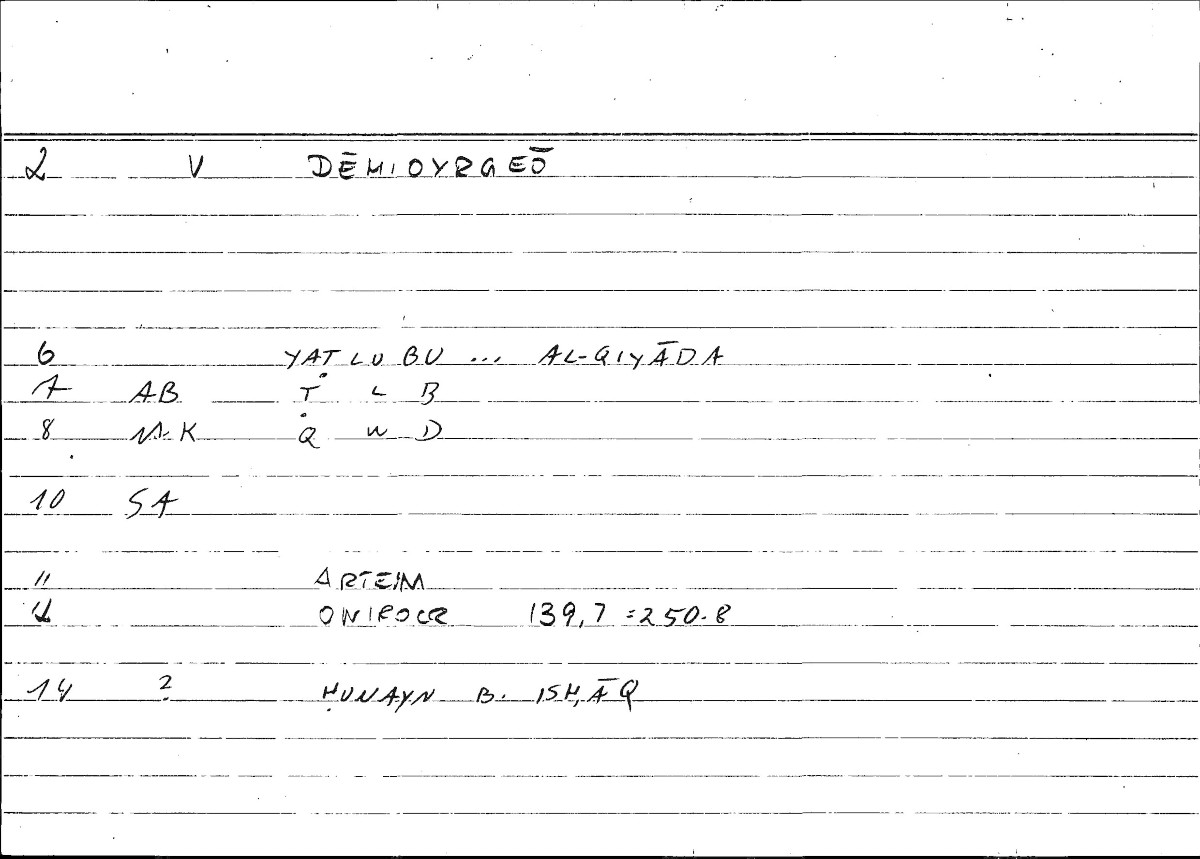 2 V DĒMIOYRGEŌ
6 YAṬLUBU ... AL-QIYĀDA
7 AB Ṭ L B
8 M.K Q W D
10 SA
11 ARTEIM
12 ONIROCR 139,7 = 250.8
14 ? ḤUNAYN B. ISḤĀQ